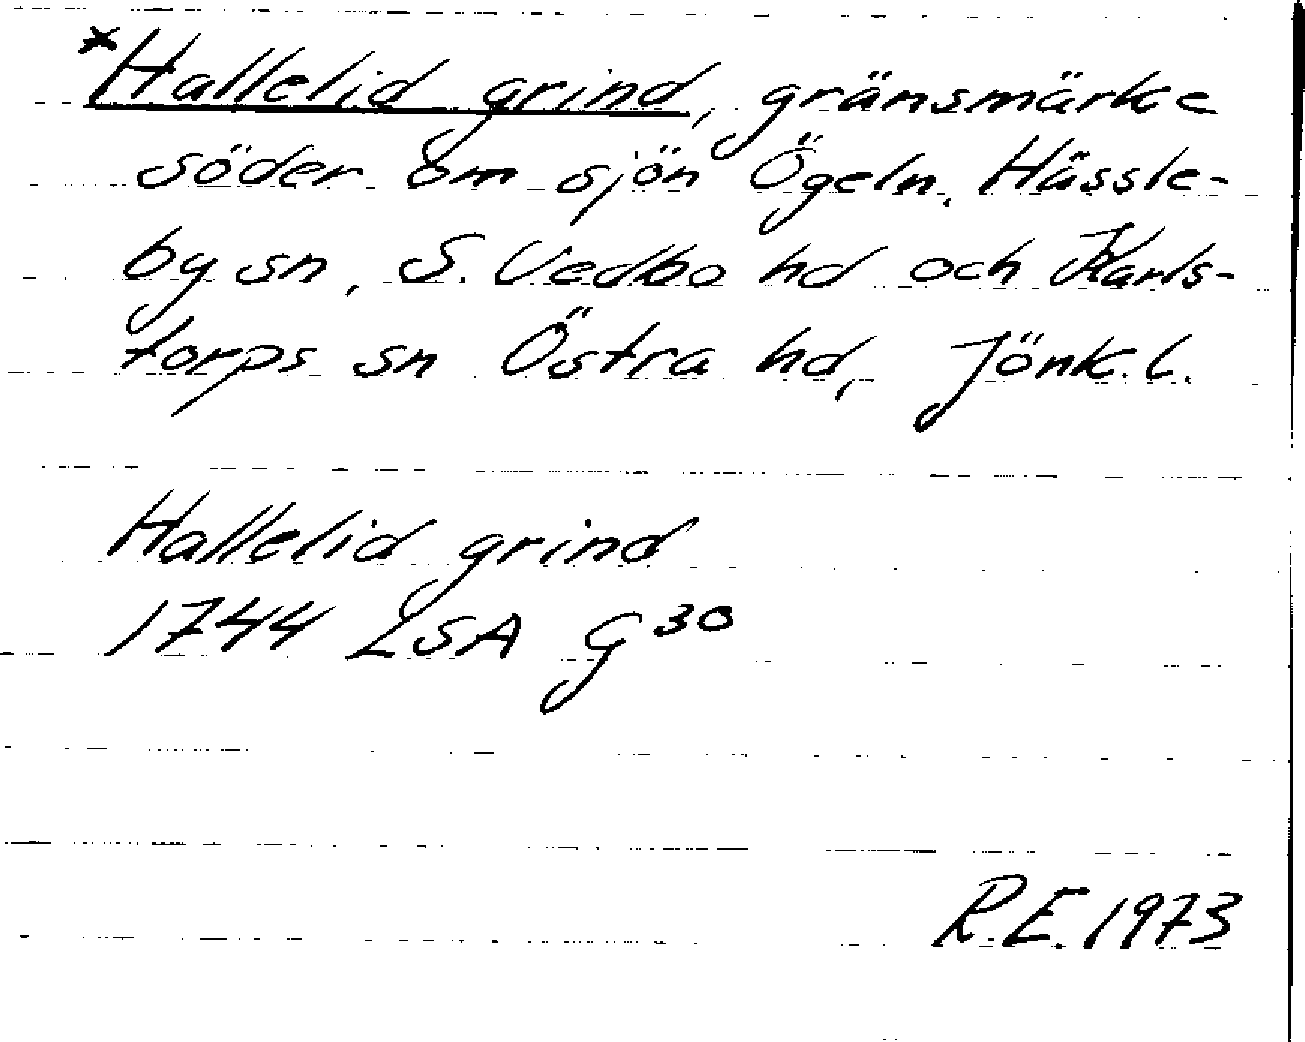 *Hallelid grind, gränsmärke
söder om sjön Ögeln, Hässle-
by sn, S. Vedbo hd och Karls-
torps sn Östra hd, Jönk. l.
Hallelid grind
1744 LSA G 30
R.E. 1973